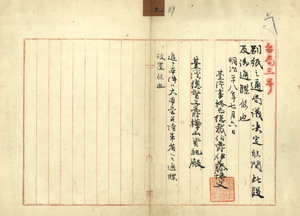 台局三号
別紙之通局議決定候間此段
及御通牒候也
明治二十八年七月六日
台湾事務局総裁伯爵伊藤博文
台湾総督子爵樺山資紀殿
追テ本件ハ大本営及陸軍省ヘモ通牒
致置候也